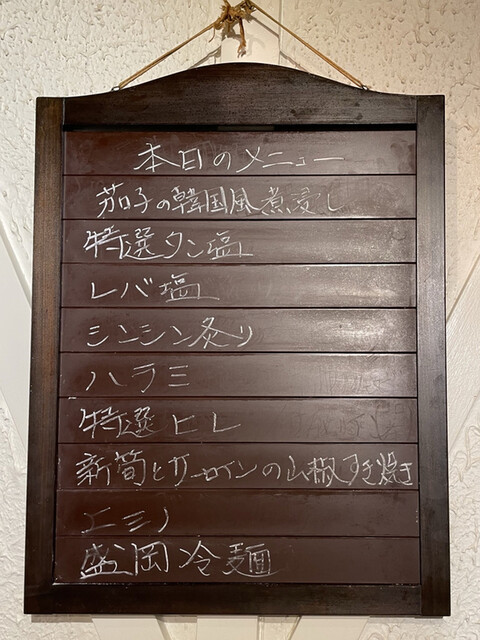 本日のメニュー
茄子の韓国風煮浸し
特選タン塩
レバ塩
シンシン炙り
ハラミ
特選ヒレ
新筍とサーロインの山椒すき焼き
エミノ
盛岡冷麺